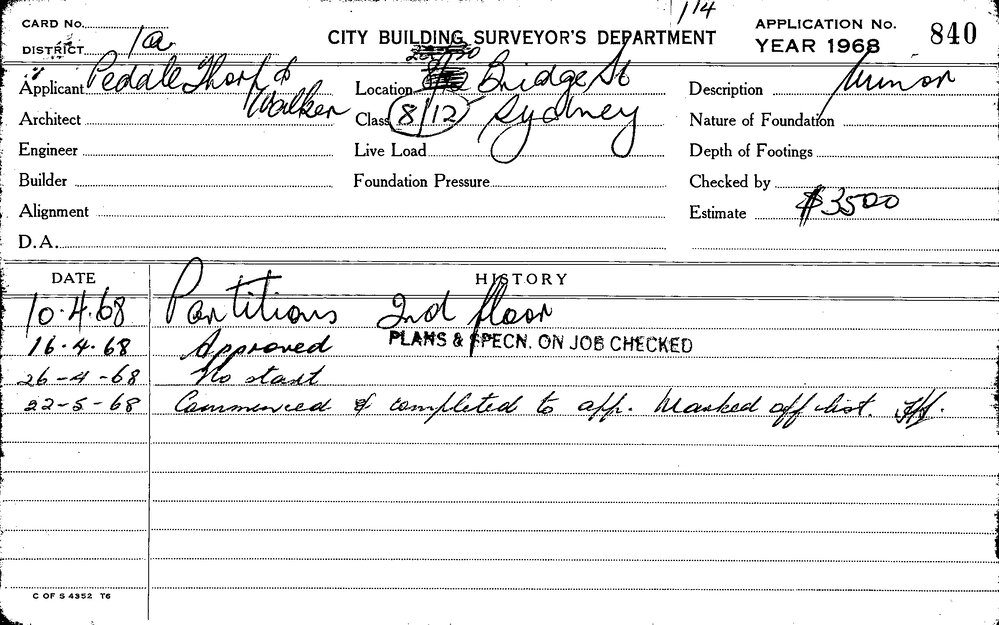 1/4
CARD No. APPLICATION No. 840
DISTRICT 1a CITY BUILDING SURVEYOR'S DEPARTMENT YEAR 1968
Applicant Peddle Thorp & Walker Location Bridge St Description Minor
Architect Class 8/12 Sydney Nature of Foundation
Engineer Live Load Depth of Footings
Builder Foundation Pressure Checked by
Alignment Estimate $3500
D.A.
DATE HISTORY
10.4.68 Partitions 2nd floor
16.4.68 Approved PLANS & SPECN. ON JOB CHECKED
26-4-68 No start
22-5-68 Commenced & completed to app. Marked off list.
C OF S 4352 T6